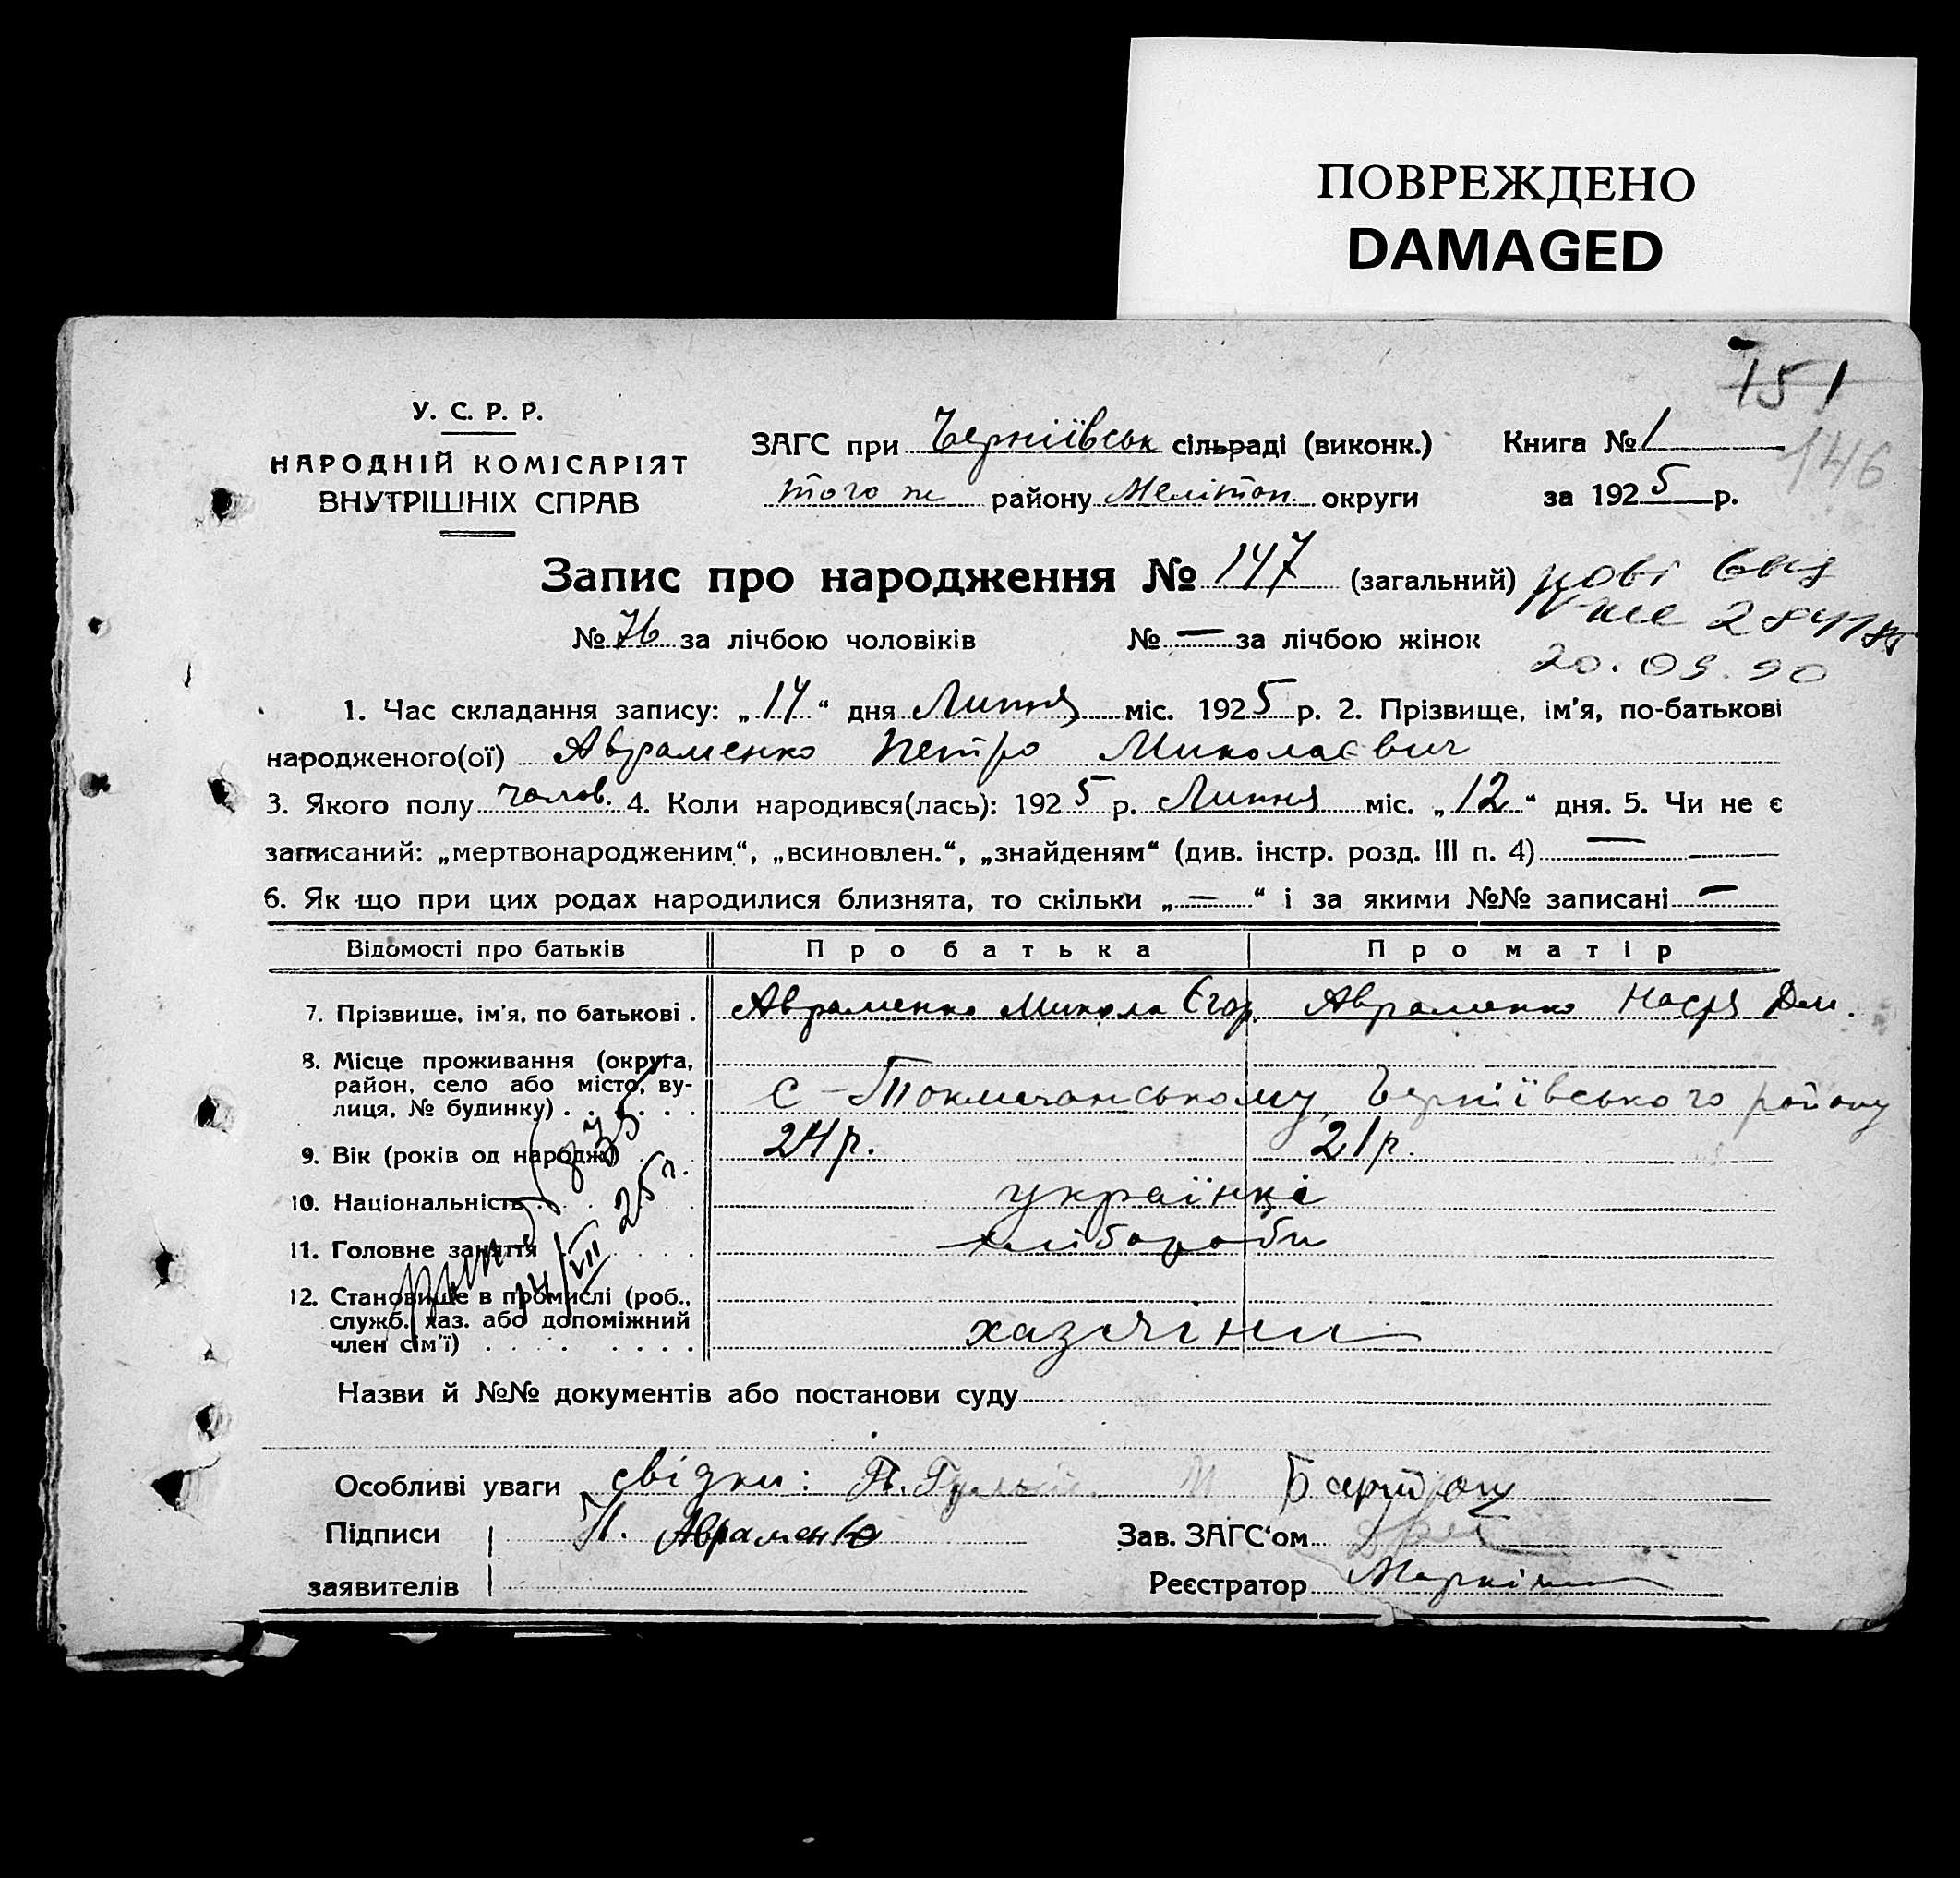 ПОВРЕЖДЕНО
DAMAGED
151
146
У. С. Р. Р.
НАРОДНІЙ КОМІСАРІЯТ
ВНУТРІШНІХ СПРАВ
ЗАГС при Черніївськ сільраді (виконк.) Книга № 1
того ж району Мелітоп. округи за 1925 р.
Запис про народження № 147 (загальний)
№ 76 за лічбою чоловіків № — за лічбою жінок
20.09.90
1. Час складання запису: „14“ дня Липня міс. 1925 р. 2. Прізвище, ім'я, по-батькові
народженого(ої) Авраменко Петро Миколаєвич
3. Якого полу чолов. 4. Коли народився(лась): 1925 р. Липня міс. „12“ дня. 5. Чи не є
записаний: „мертвонародженим“, „всиновлен.“, „знайденям“ (див. інстр. розд. III п. 4) —
6. Як що при цих родах народилися близнята, то скільки „—“ і за якими №№ записані —
Відомості про батьків Про батька Про матір
7. Прізвище, ім'я, по батькові . Авраменко Микола Єгор. Авраменко Настя Дем.
8. Місце проживання (округа,
район, село або місто, ву-
лиця, № будинку) . . . . . с-Токмачанському Черніївського району
9. Вік (років од народж.) 24 р. 21 р.
10. Національність українці
11. Головне заняття хлібороби
12. Становище в промислі (роб.,
служб. хаз. або допоміжний
член сім'ї) хазяїни
14/VII 25 р.
Назви й №№ документів або постанови суду
Особливі уваги свідки:
Підписи Авраменко Зав. ЗАГС'ом
заявителів Реєстратор